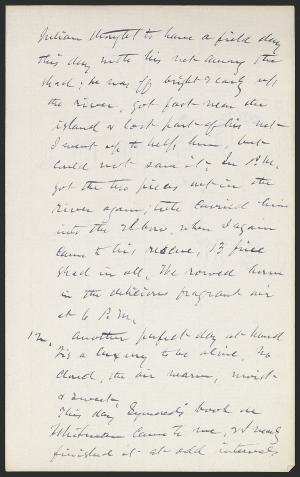 Julian thought to have a field day
this day with his net among the
shad; he was off bright & early up
the river, got fast near the
island & lost part of his net.
I went up to help him, but
could not save it; In P.M.
got the two pieces net in the
river again; tide carried him
into the again
came to his rescue, 13 fine
shad in all. We rowed home
in the delicious fragrant air
at 6 P.M.
12, Another perfect day at hand
Tis a luxury to be alive, No
cloud, the air warm, moist
& sweet,
This day Symonds' book on
Whitman came to me, & I nearly
finished it at odd intervals